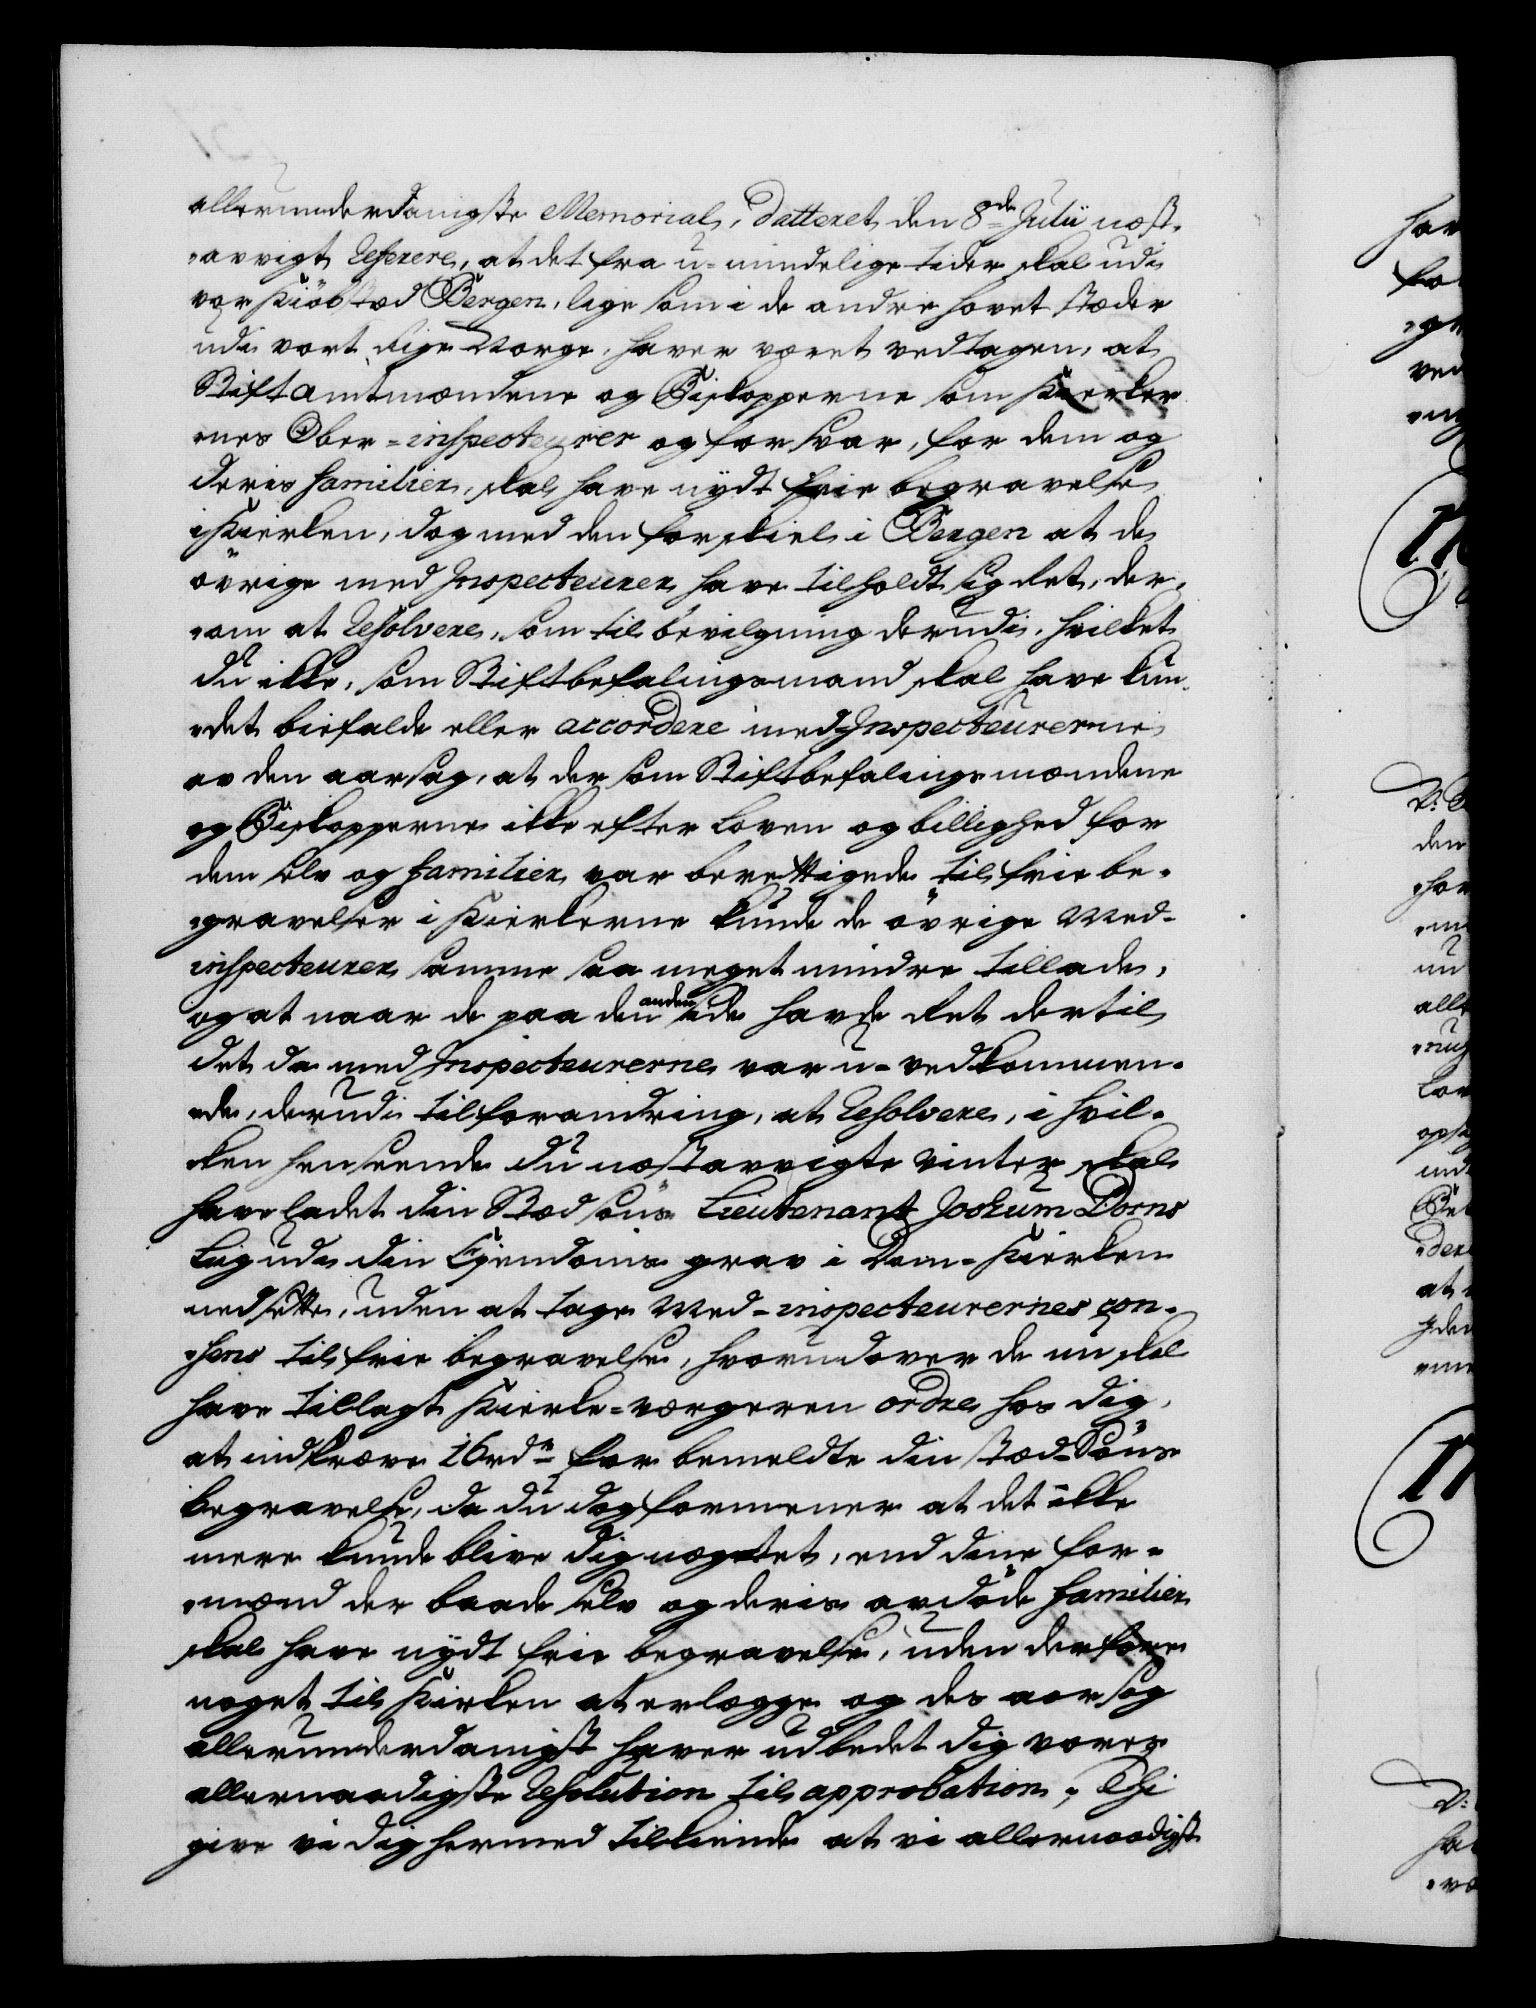 allerunderdanigste Memorial, datteret den 8de Julii næst-
avvigt refererer, at det fra u-mindelige tider skal udi
vor Kiöbstæd Bergen, lige som i de andre hovet stæder
udi vort Rige Norge, haver været vedtagen, at
Stiftamtmændene og Biskopperne som Kierker-
nes Ober-inspecteurer og forsvar, for dem og
deris familier, skal have nydt frie begravelse
i Kierken, dog med den forskiel i Bergen at de
övrige med Inspecteurer have tilholdt sig Ret, der-
om at resolvere, som til bevilgning derudi, hvilket
du ikke, som Stiftbefalingsmand skal have kun-
det biefalde eller accordere med Inspecteurerne
av den aarsag, at der som Stiftbefalingsmændene
og Biskopperne ikke efter Loven og billighed for
dem selv og familier var berettigede til frie be-
gravelser i Kierkerne kunde de övrige Med-
inspecteurer samme saa meget mindre tillade,
og at naar de paa den anden side havde Ret dertil
det da med Inspecteurerne var u-vedkommen-
de, derudi til forandring, at resolvere, i hvil-
ken henseende du næstavvigte vinter skal
have ladet din Stedsöns Lieutenant Jochum Dorns
Liig udi din Ejendoms grav i Dom-Kierken
nedsette, uden at tage Med-inspecteurernes con-
sens til frie begravelse, hvorudover de nu skal
have tillagt Kierke-værgeren ordre hos dig,
at indkræve 16 rdr for bemeldte din Sted-Söns
begravelse, da du dog formener at det ikke
mere kunde blive dig nægtet, end dine for-
mænd der baade selv og deris avdöde familier
skal have nydt frie begravelse, uden derfore
noget til Kirken at erlægge og des aarsag
allerunderdanigst haver udbedet dig vores
allernaadigste Resolution til approbation; Thi
give vi dig hermed tilkiende at vi allernaadigst